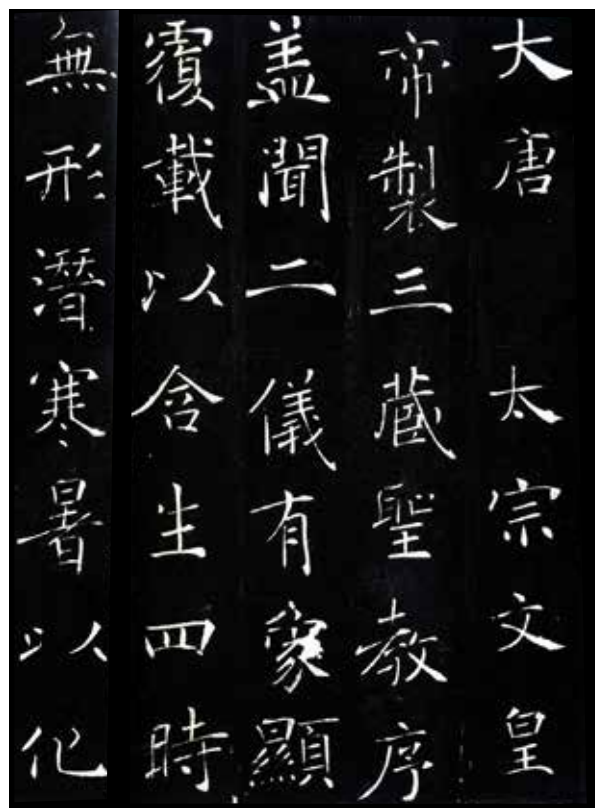 大唐 太宗文皇
帝製三蔵聖教序
盖聞二儀有象顯
覆載以含生四時
無形潛寒暑以化